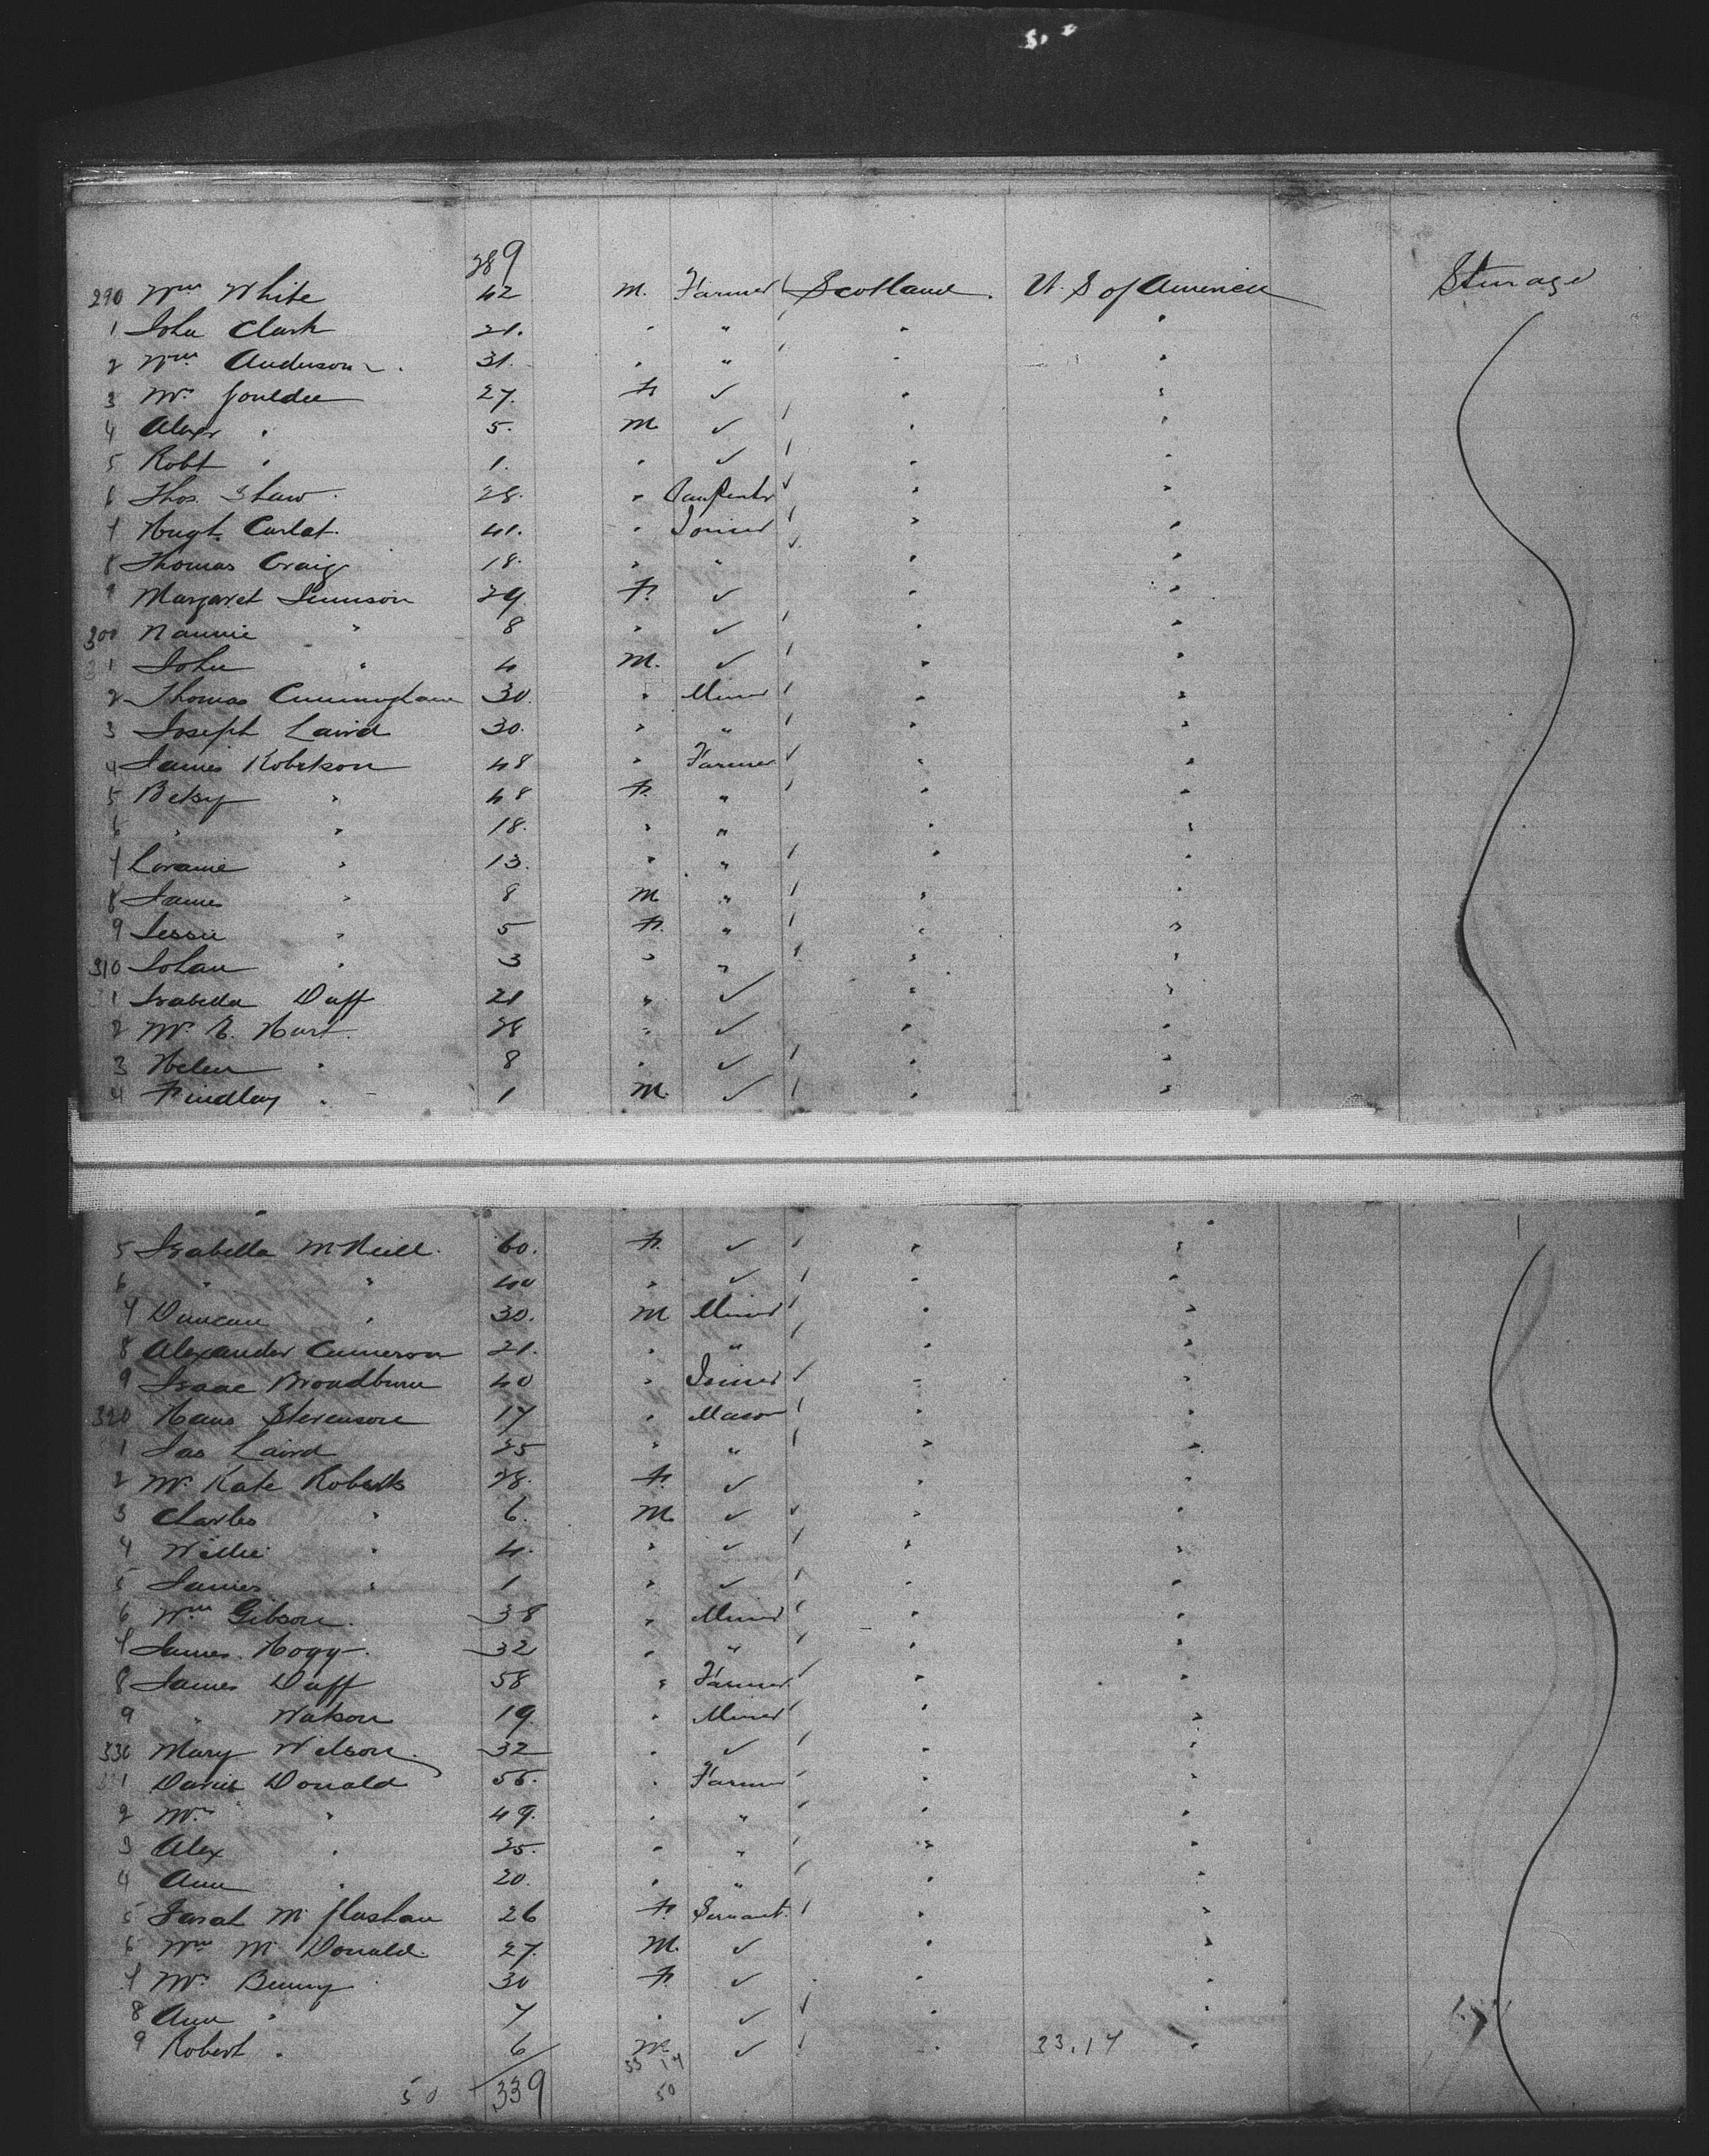 289
290 Wm White 42 M. Farmer Scotland. U. S of America Sturage
1 John Clark 21. " " " "
2 Wm Anderson. 31. " " " "
3 Mrs Gouldie 27. F. ✓ " "
4 Alexr " 5. M ✓ " "
5 Robt " 1. " ✓ " "
6 Thos. Shaw. 28. " Carpenter " "
7 Hugh 41. " Joiner " "
8 Thomas Craig 18. " " " "
9 Margaret 29. F. ✓ " "
300 Nannie " 8 " ✓ " "
1 John " 4 M. ✓ " "
2 Thomas Cunningham 30. " Miner " "
3 Joseph Laird 30. " " " "
4 James Robertson 48 " Farmer " "
5 Betsy " 48 F. " " "
6 " " 18. " " " "
7 " 13. " " " "
8 James " 8 M " " "
9 Jessie " 5 F. " " "
310 Johan " 3 " " " "
1 Isabella Duff 21 " ✓ " "
2 Mrs Hart. 28 " ✓ " "
3 Helen " 8 " ✓ " "
4 Findlay " 1 M. ✓ " "
5 Isabella McNeill. 60. F. ✓ " "
6 " " 40 " ✓ " "
7 Duncan " 30. M Miner " "
8 Alexander Cameron 21. " " " "
9 Isaac Broadburn 40 " Joiner " "
320 Hans Stevenson 17 " Mason " "
1 Jas Laird 25 " " " "
2 Mrs Kate Roberts 28. F. ✓ " "
3 Charles " 6. M ✓ " "
4 Willie " 4. " ✓ " "
5 James " 1 " ✓ " "
6 Wm Gibson. 38 " Miner " "
7 James Hogg. 32 " " " "
8 James Duff 58 " Farmer " "
9 " Watson 19. " Miner " "
330 Mary Wilson. 32 " ✓ " "
1 Donald " Farmer " "
2 Mrs " 49. " " " "
3 Alex " 25. " " " "
4 Ann " 20. " " " "
5 Sarah McGlashan 26 F. Servant. " "
6 Wm McDonald. 27. M. ✓ " "
7 Mrs 30 F. ✓ " "
8 Ann " 7 " ✓ " "
9 Robert " 6 M. ✓ " 33.17 "
33 17
50 339 50